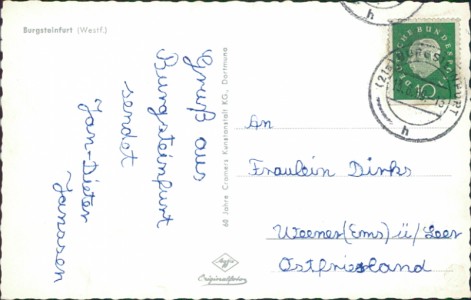 Burgsteinfurt (Westf.)
Gruß aus
Burgsteinfurt
sendet
Jan-Dieter
Janssen
60 Jahre Cramers Kunstanstalt KG., Dortmund
DEUTSCHE BUNDESPOST
10
h
h
An
Fräulein Dirks
Weener (Ems) ü/Leer
Ostfriesland
Agfa
Originalfoto